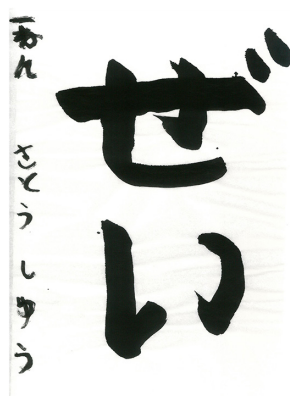 ぜい
一ねん さとうしゅう